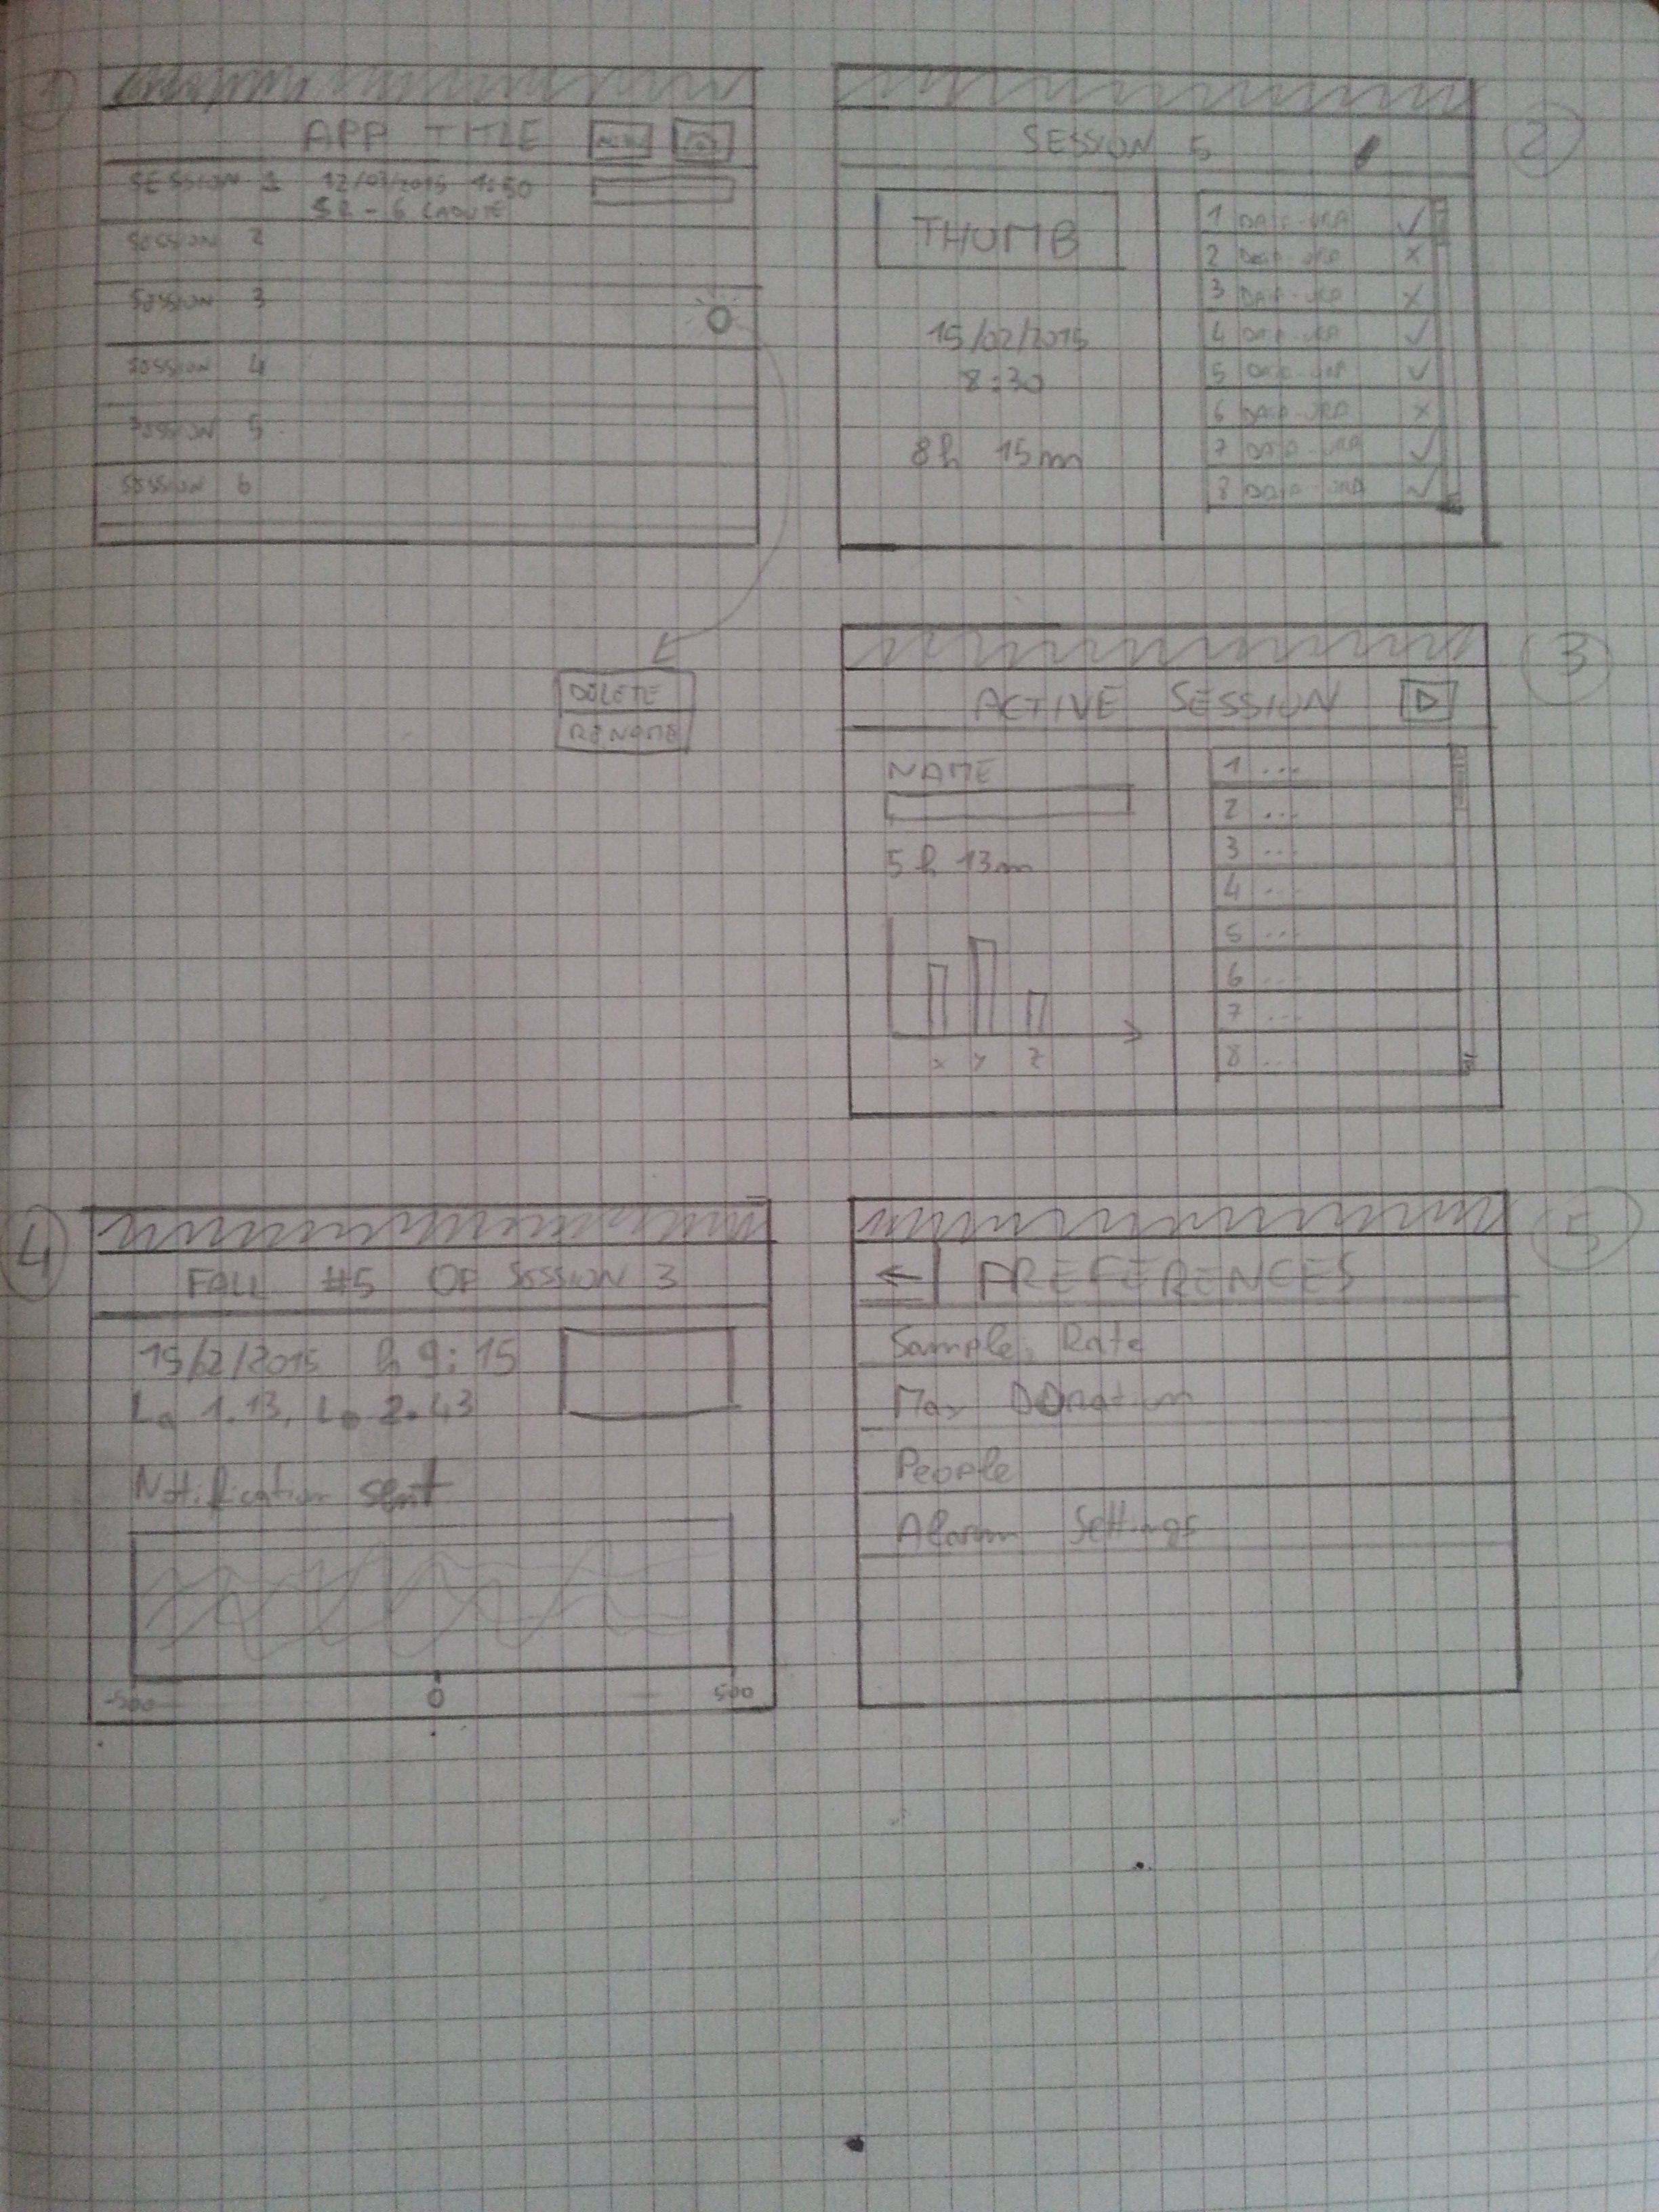 1
APP TITLE
SESSION 1 12/03/2015 1:50
- 6 CADUTE
SESSION 2
SESSION 3
SESSION 4
SESSION 5
SESSION 6
DELETE
RENAME
2
SESSION 5
THUMB
15/02/2015
8:30
8h 15m
1 DATA-ORA ✓
2 DATA-ORA X
3 DATA-ORA X
4 DATA-ORA ✓
5 DATA-ORA ✓
6 DATA-ORA X
7 DATA-ORA ✓
8 DATA-ORA ✓
3
ACTIVE SESSION
NAME
5h 13m
x y z
1 ...
2 ...
3 ...
4 ...
5 ...
6 ...
7 ...
8 ...
4
FALL #5 OF SESSION 3
15/2/2015 h 9:15
La 1.13, Lo 2.43
Notification sent
-500 0 500
5
← PREFERENCES
Sample Rate
Max
People
Alarm Settings